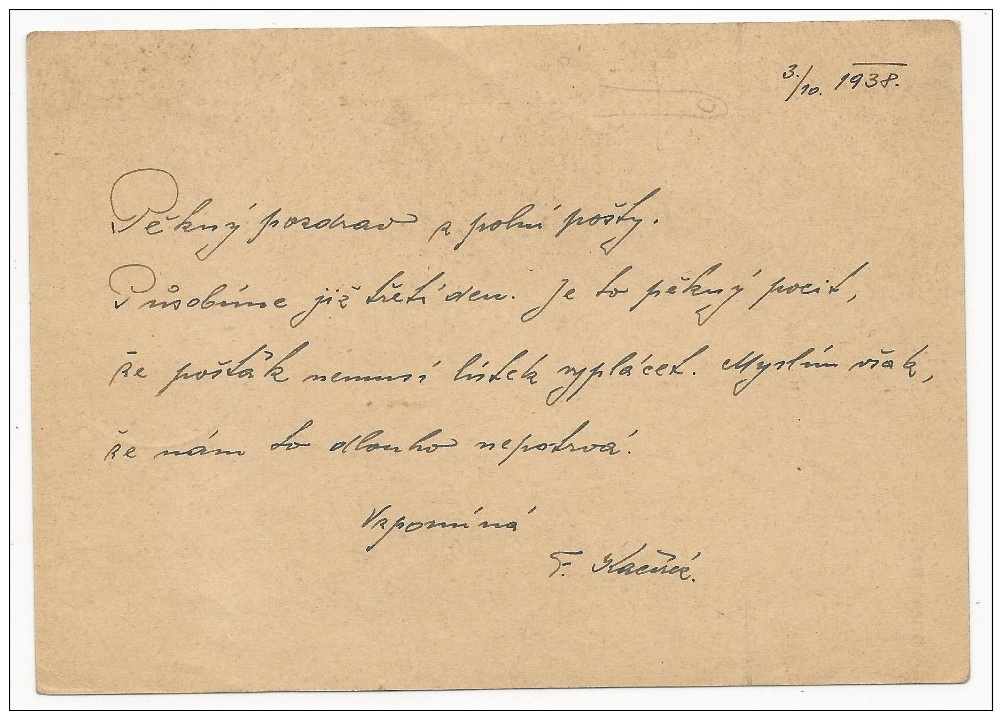 3./10. 1938.
Pěkný pozdrav z polní pošty.
Působíme již třetí den. Je to pěkný pocit,
že pošťák nemusí lístek vyplácet. Myslím však,
že nám to dlouho nepotrvá.
Vzpomíná
F.